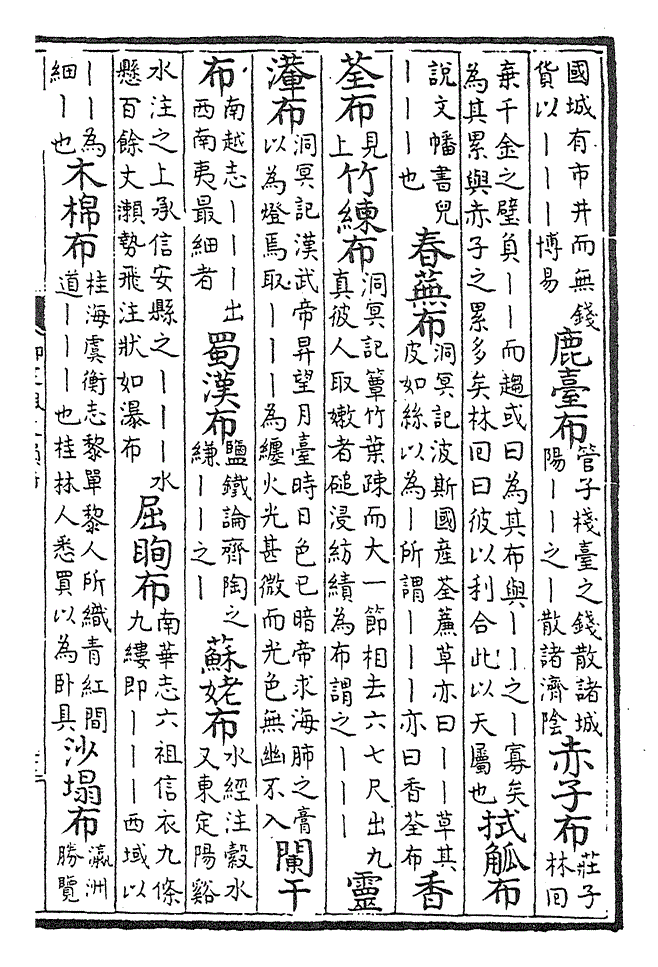 國城有市井而無錢
貨以｜｜｜博易
鹿臺布
管子棧臺之錢散諸城
陽｜｜之｜散諸濟陰
赤子布
莊子
林回
棄千金之璧負｜｜而趨或曰為其布與｜｜之｜寡矣
為其累與赤子之累多矣林回曰彼以利合此以天屬也
拭觚布
說文幡書兒
｜｜｜也
春蕪布
洞冥記波斯國產荃蕪草亦曰｜｜草其
皮如絲以為｜所謂｜｜｜亦曰香荃布
香
荃布
見
上
竹練布
洞冥記篳竹葉疎而大一節相去六七尺出九
真彼人取嫩者磓浸紡績為布謂之｜｜｜
靈
布
洞冥記漢武帝昇望月臺時日色已暗帝求海肺之膏
以為燈焉取｜｜｜為纏火光甚微而光色無幽不入
闌干
布
南越志｜｜｜出
西南夷最細者
蜀漢布
鹽鐵論齊陶之
縑｜｜之｜
蘇姥布
水經注穀水
又東定陽谿
水注之上承信安縣之｜｜｜水
懸百餘丈瀨勢飛注狀如瀑布
屈眴布
南華志六祖信衣九條
九縷即｜｜｜西域以
｜｜為
細｜也
木棉布
桂海虞衡志黎單黎人所織青紅間
道｜｜｜也桂林人悉買以為臥具
沙塌布
瀛洲
勝覽